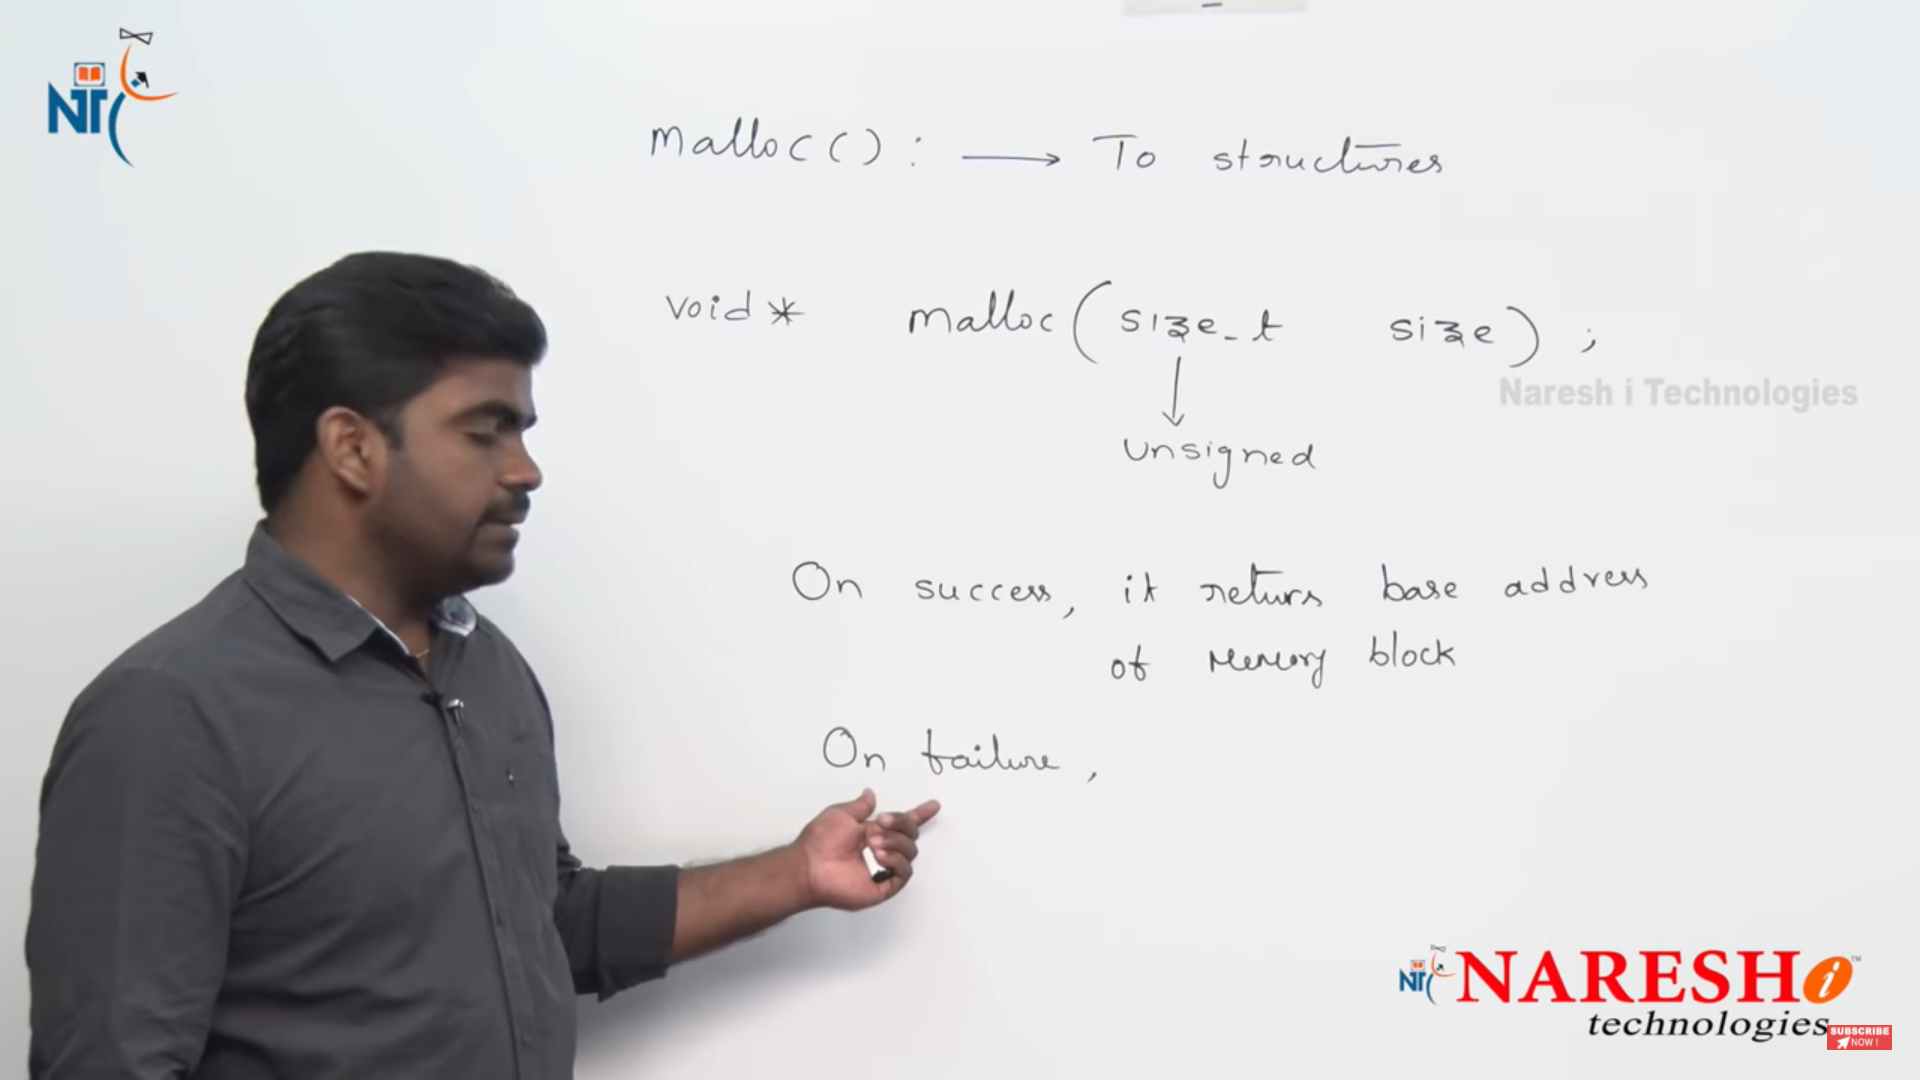 NT
malloc() : → To structures
void * malloc( size_t size) ;
Naresh i Technologies
unsigned
On success, it returs base address
of memory block
On failure,
NT NARESH i ™
technologies
SUBSCRIBE
NOW !